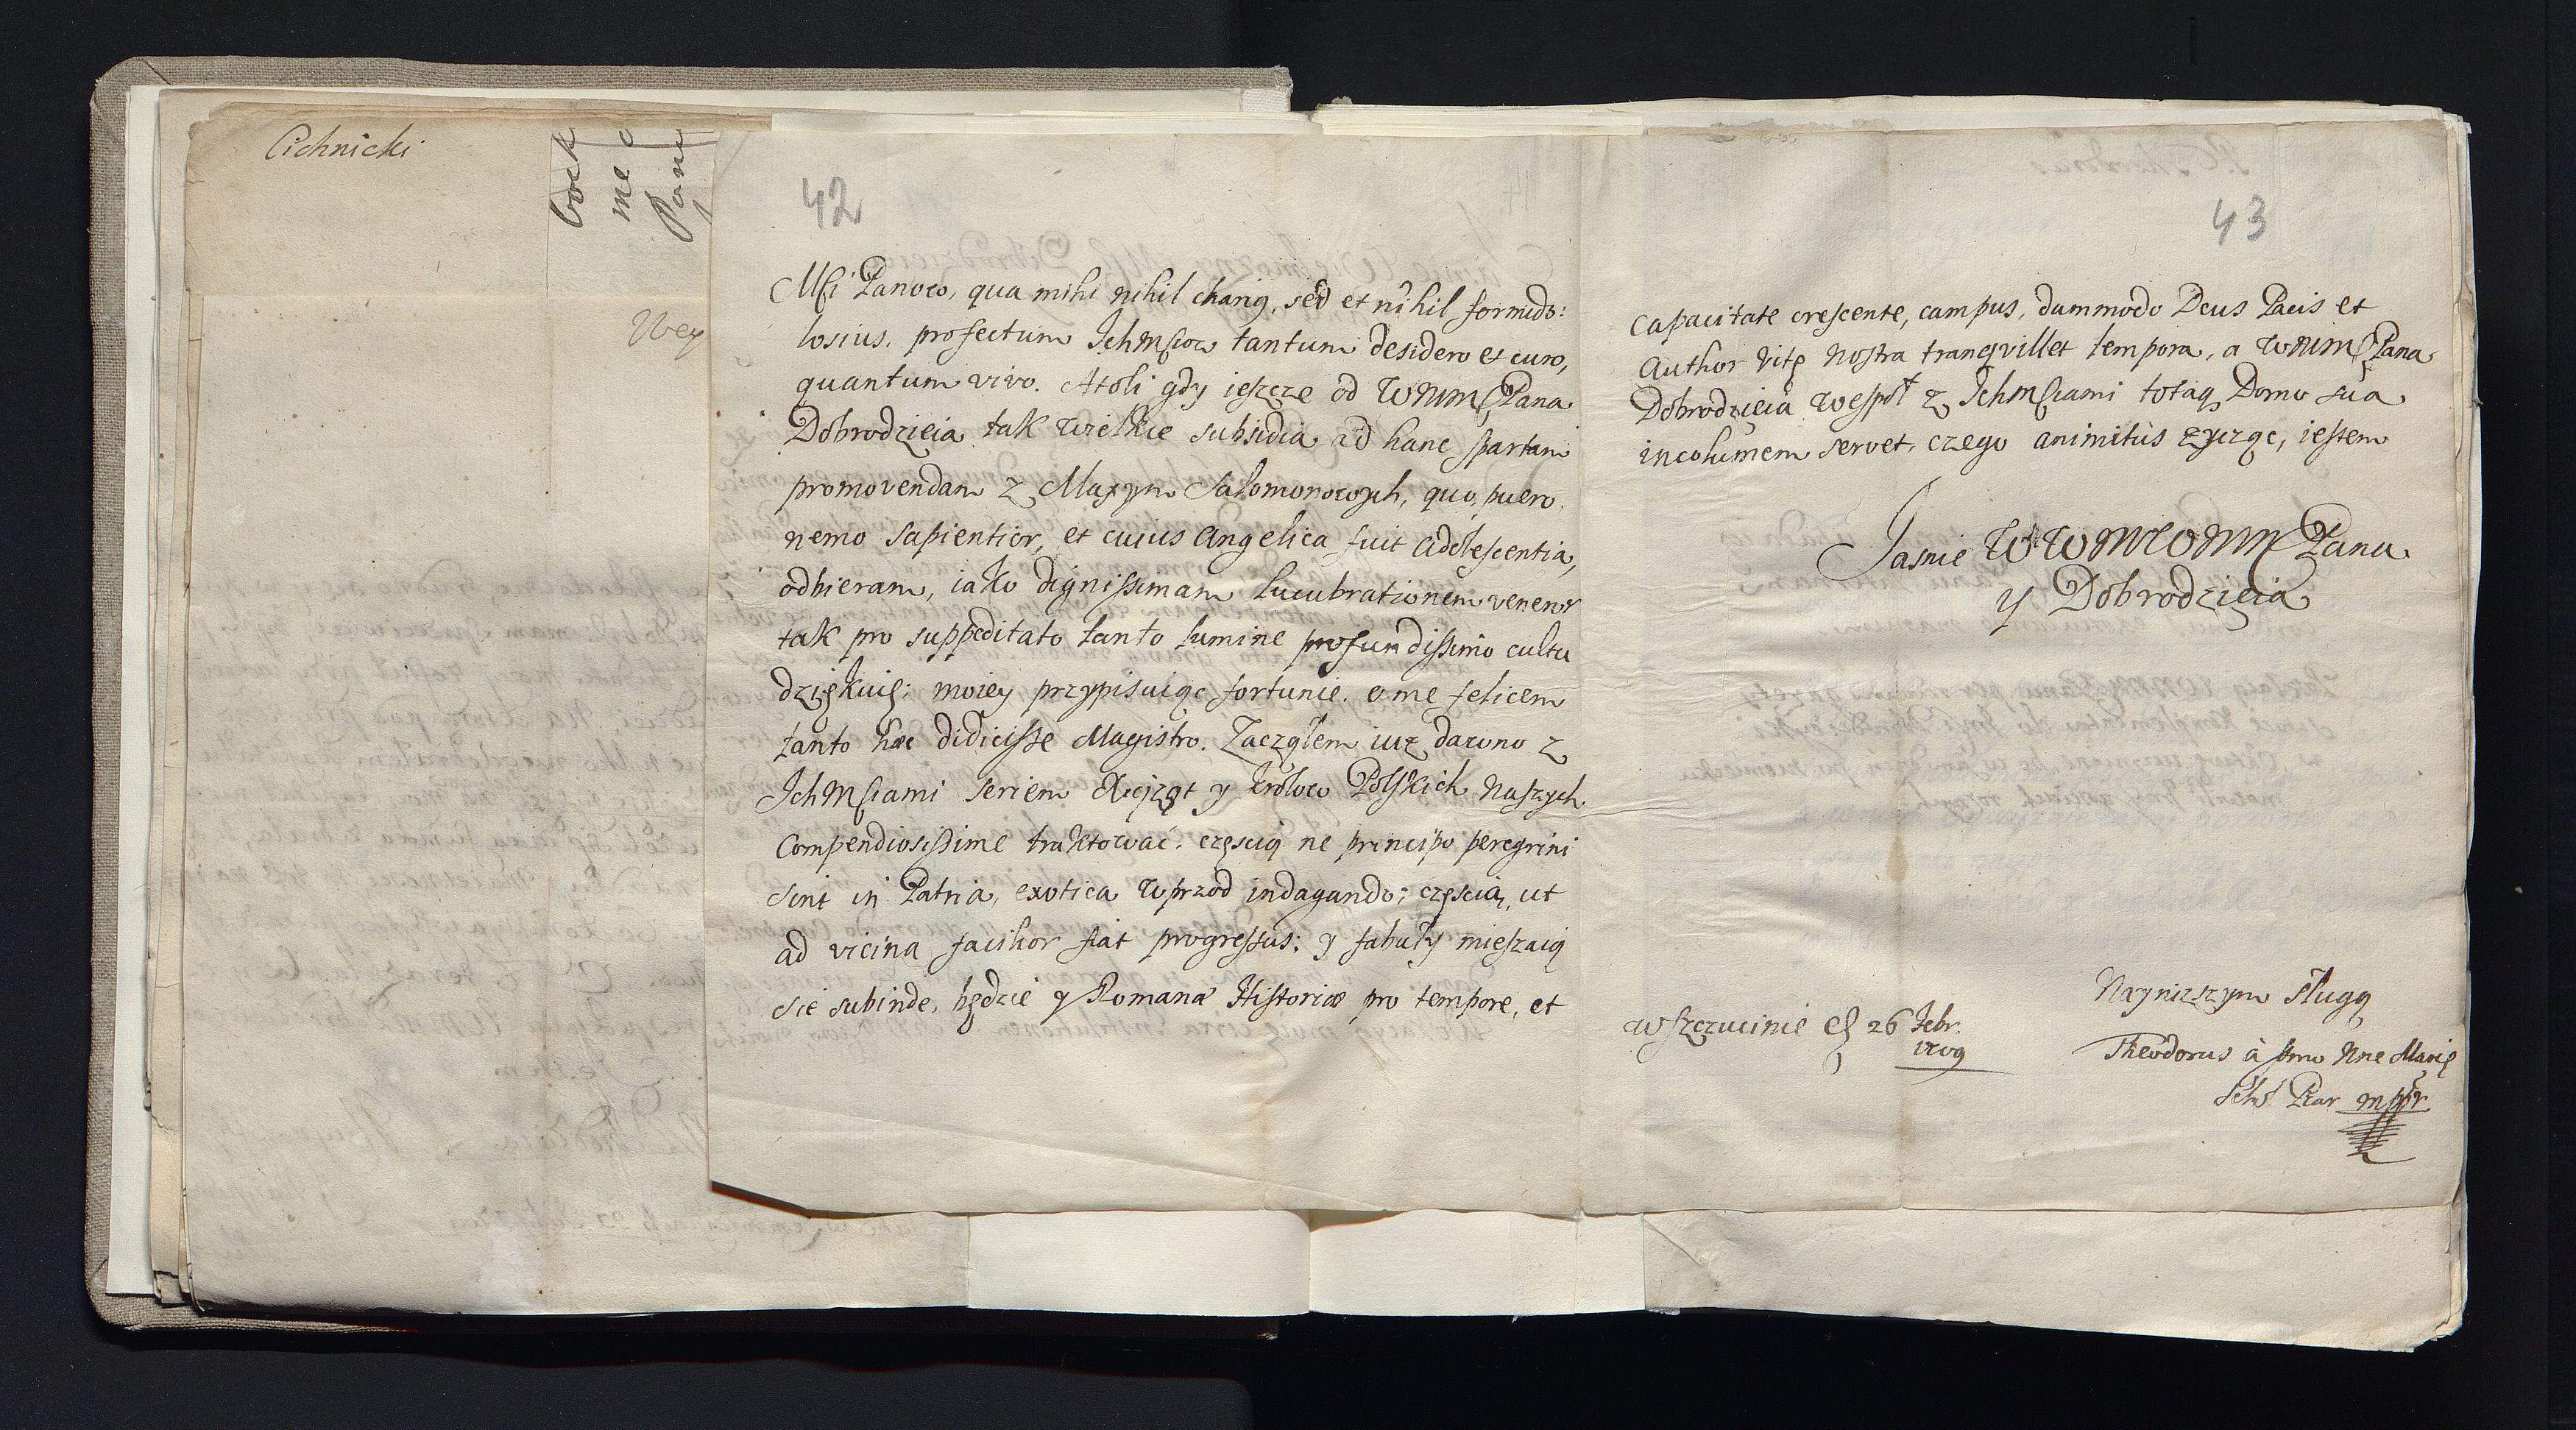 Cichnicki
bosk
me c
Pane
Wey
42
Msci Panow, qua mihi nihil chariq, sed et nihil formido:
losius. profectum Ichmsciow tantum desidero et curo,
quantum vivo. Atoli gdy ieszcze od WMM Pana
Dobrodzieia tak wielkie subsidia ad hanc spartam
promovendam z Maxym Salomonowych, quo, puero,
nemo sapientior, et cuius Angelica fuit adolescentia,
odbieram, iako dignissimam Lucubrationem veneror
tak pro suppeditato tanto lumine profundissimo cultu
dziękuię; moiey przypisuiąc fortunie. o me felicem
tanto hæc didicisse Magistro. Zacząłem iuż dawno z
Ichmsciami seriem Xiążąt y Krolow Polskich naszych
Compendiosissime traktować. częscią ne principo peregrini
sint in Patria, exotica wprzod indagando; częscią, ut
ad vicina facilior fiat progressus: y fabuły mieszaią
sie subinde, będzie y Romanæ Historiæ pro tempore, et
43
Capacitate crescente, campus, dummodo Deus Pacis et
Author vitę nostra tranqvillet tempora, a WMM Pana
Dobrodzieia wespoł z Ichmsciami totaq Domo sua
incolumem servet. czego animitùs życząc, iestem
Jasnie WWMWMM Pana
y Dobrodzieia
Nayniższym sługą
w Szczucinie 26 Febr.
1709
Theodorus à Smo Nne Marię
Scho Piar mppr